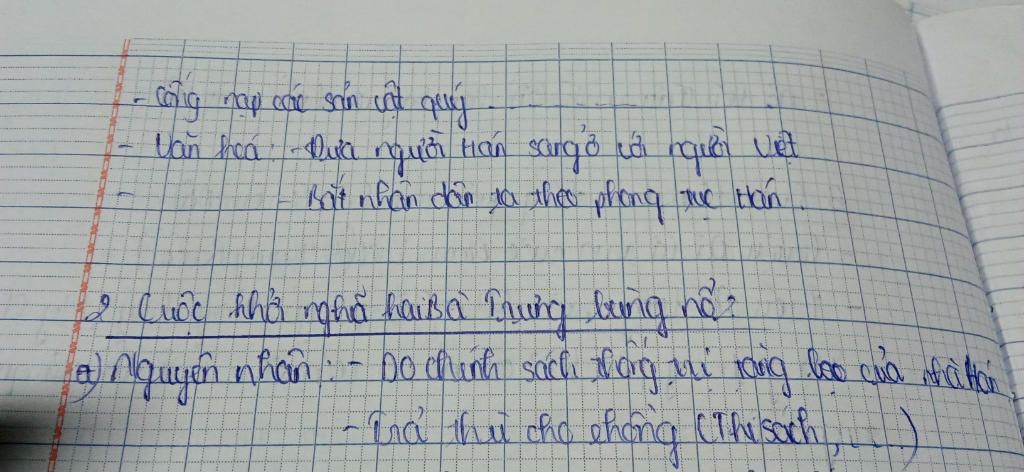 - Cống nạp các sản vật quý
- Văn hoá: - Đưa người Hán sang ở với người Việt
- - Bắt nhân dân ta theo phong tục Hán.
2 Cuộc khởi nghĩa hai Bà Trưng bùng nổ:
a) Nguyên nhân: - Do chính sách thống trị tàn bạo của nhà Hán
- Trả thù cho chồng (Thi sách, ....)